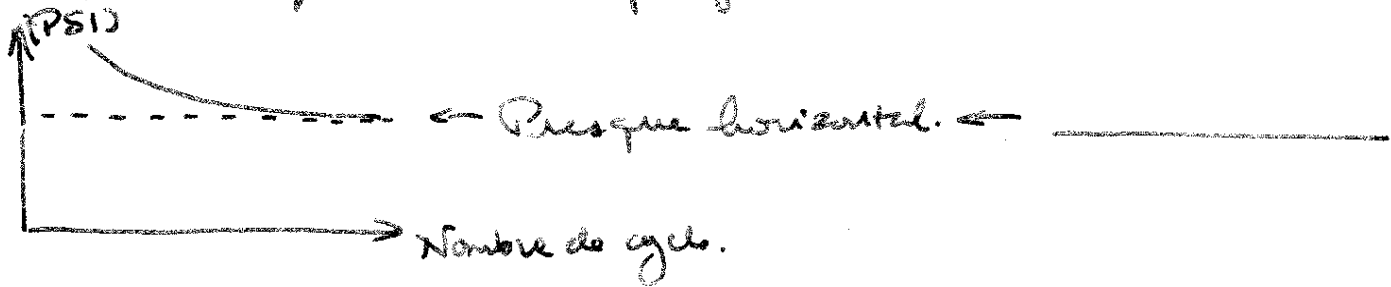 (PSI)
← Presque horizontal. ←
Nombre de cycle.